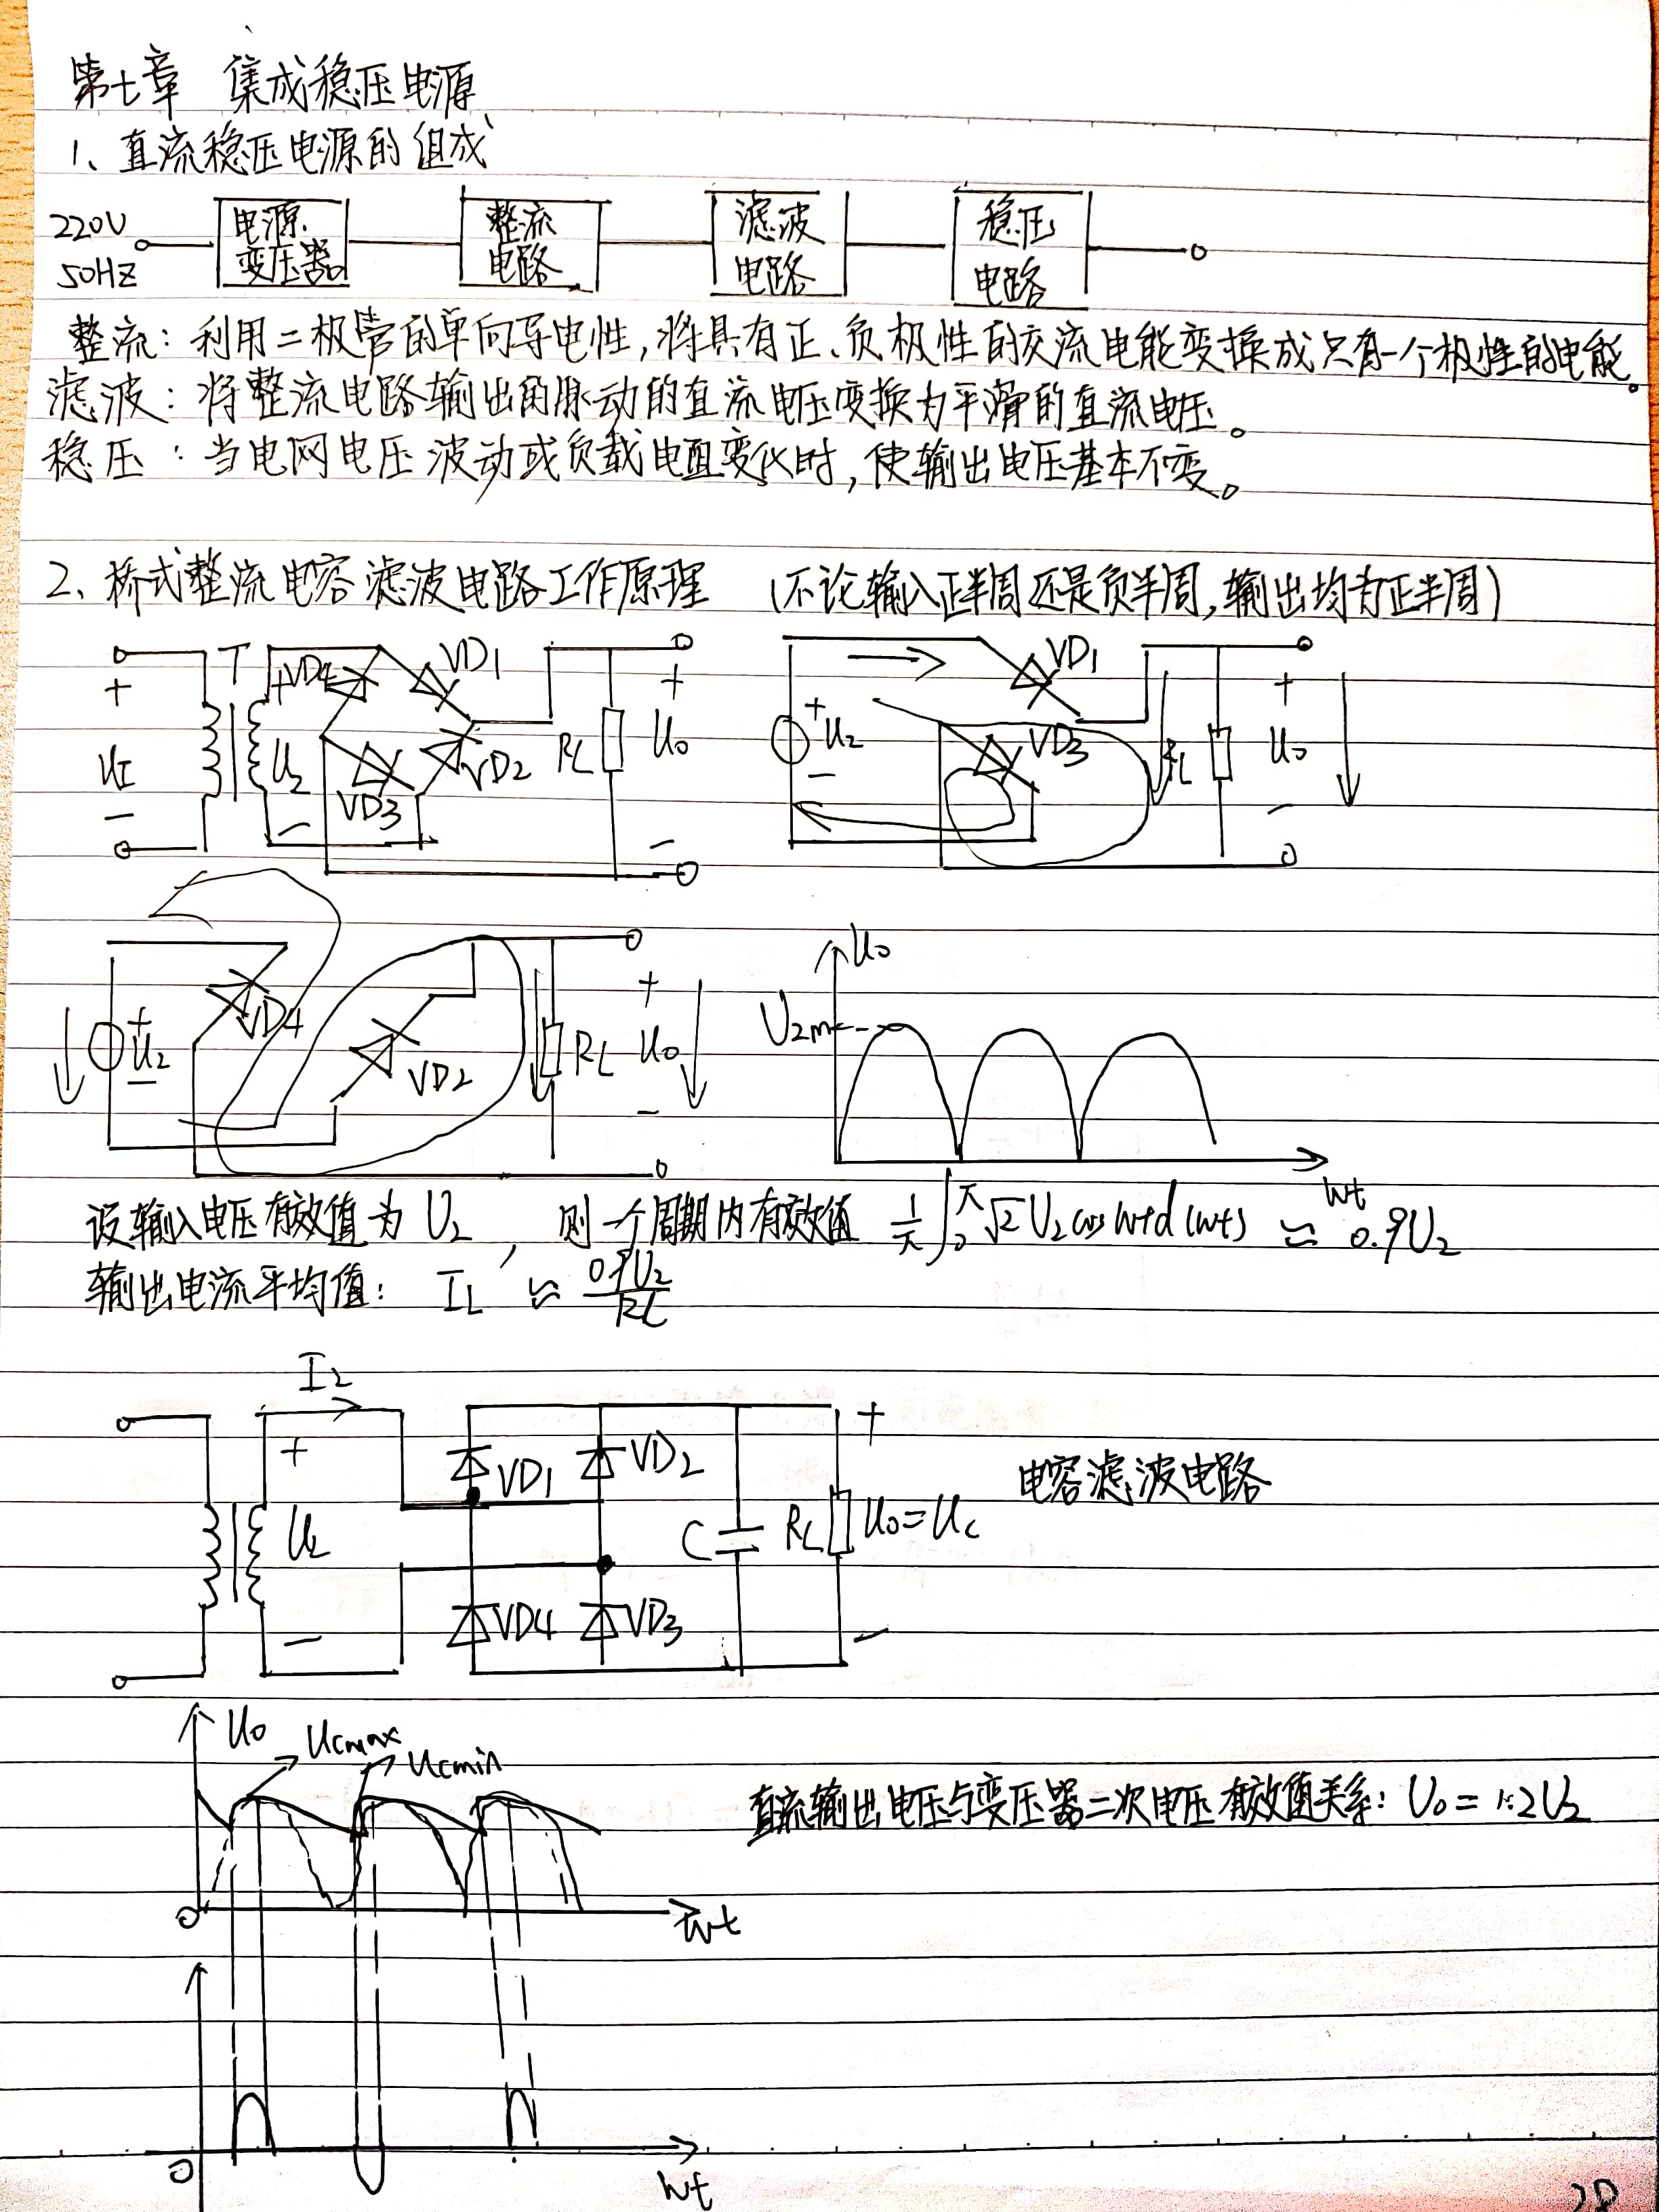 第七章 集成稳压电源
1、直流稳压电源的组成
220V
50HZ
电源
变压器
整流
电路
滤波
电路
稳压
电路
整流：利用二极管的单向导电性，将具有正、负极性的交流电能变换成只有一个极性的电能。
滤波：将整流电路输出的脉动的直流电压变换为平滑的直流电压。
稳压：当电网电压波动或负载电阻变化时，使输出电压基本不变。
2、桥式整流电容滤波电路工作原理 （不论输入正半周还是负半周，输出均为正半周）
+ UI − T + U2 − VD4 VD1 VD3 VD2 RL + U0 −
+ U2 − VD1 VD3 RL + U0 −
+ U2 − VD4 VD2 RL + U0 −
U0 U2m wt
设输入电压有效值为 U2，则一个周期内有效值 1/π ∫0^π √2 U2 cos wt d(wt) ≈ 0.9U2
输出电流平均值： IL ≈ 0.9U2/RL
I2
+ U2 − VD1 VD2 VD4 VD3 C RL + U0=Uc −
电容滤波电路
U0 Ucmax Ucmin
直流输出电压与变压器二次电压有效值关系：U0=1.2U2
0 wt
0 wt